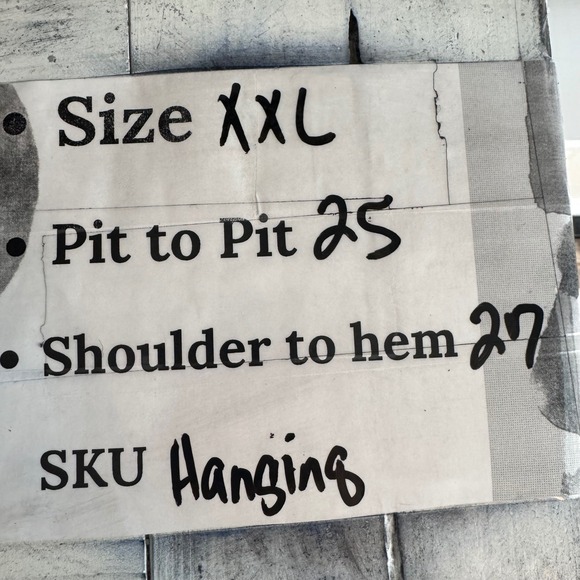 • Size XXL
• Pit to Pit 25
• Shoulder to hem 27
SKU Hanging